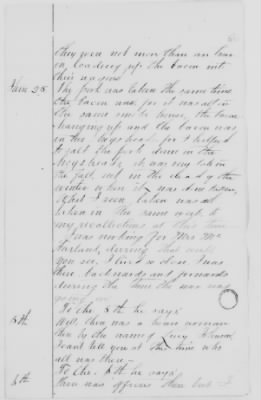 they were not more than an hour
on, loading up the bacon into
their wagons.
Item 28 The pork was taken the same time
the bacon was, for it was all in
the same smoke house, the bacon
hanging up and the bacon was
in the hogshead, for I helped
to pack the pork down in the
hogsheads, it was
the fall, not in the dead of the
winter when it was taken,
What I seen taken was all
taken in the same week to
my recollections at this time
I was working for Mrs Mc
Farland, during that
you see. I lived so close, I was
then backwards and forwards
during the time the war was
going on.
To the 7th he says
8th Well, there was a woman
then by the name of Lucy
I cant tell you at this time who
all was there—
To the 8th he says
6th There was officers there but I